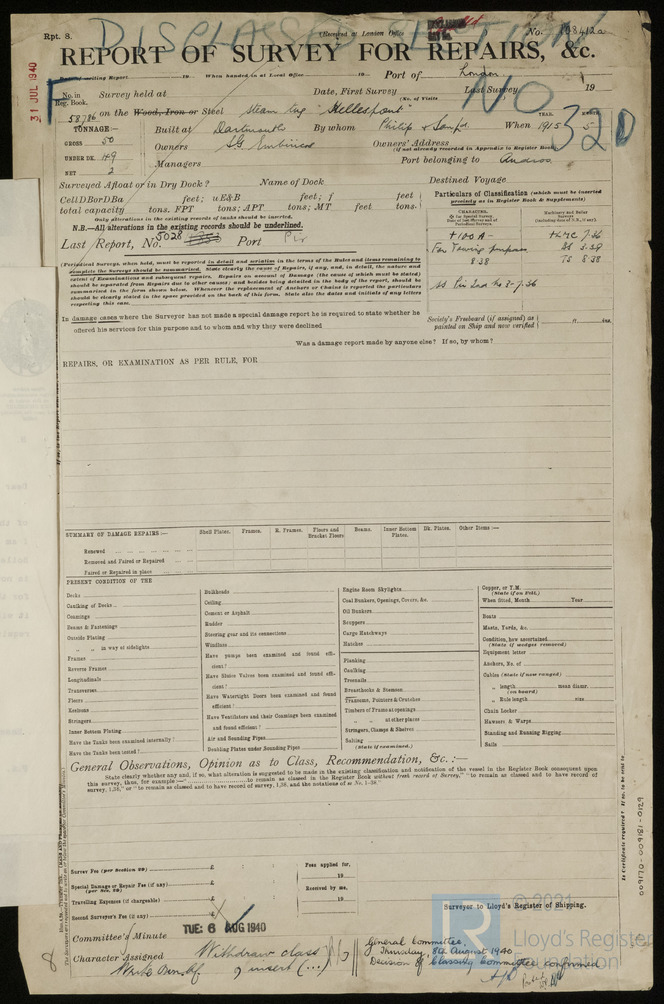 DISCLASSED SECTION
Rpt. 8.
(Received at London Office
No. 108412a
REPORT OF SURVEY FOR REPAIRS, &c.
31 JUL 1940
Date of writing Report 19 When handed in at Local Office 19 Port of London
No. in Reg. Book. Survey held at Date, First Survey Last Survey 19
(No. of Visits
NO 32D
58786 on the Wood, Iron or Steel Steam tug "Hellespont"
TONNAGE:—
GROSS 50
UNDER DK. 49
NET 2
Built at Dartmouth By whom Philip & Son Ld. When YEAR. 1915 MONTH. 5
Owners SG Embiricos Owners' Address
(If not already recorded in Appendix to Register Book)
Managers Port belonging to Andros
Surveyed Afloat or in Dry Dock? Name of Dock Destined Voyage
Cell DBorDBa feet; uE&B feet; f feet
total capacity tons. FPT tons; APT tons; MT feet tons.
Only alterations in the existing records of tanks should be inserted.
N.B.—All alterations in the existing records should be underlined.
Last Report, No. 5028 Port Pir
Particulars of Classification (which must be inserted precisely as in Register Book & Supplements)
CHARACTER.
Machinery and Boiler Surveys
+100A-
For Towing purposes
8.38
+LMC 7.36
BS 3.39
TS 8.38
SS Pir 2nd No 2-7.36
(Periodical Surveys, when held, must be reported in detail and seriatim in the terms of the Rules and items remaining to
complete the Surveys should be summarised. State clearly the cause of Repairs, if any, and, in detail, the nature and
extent of Examinations and subsequent repairs. Repairs on account of Damage (the cause of which must be stated)
should be separated from Repairs due to other causes; and besides being detailed in the body of the report, should be
summarised in the form shown below. Whenever the replacement of Anchors or Chains is reported the particulars
should be clearly stated in the space provided on the back of this form. State also the dates and initials of any letters
respecting this case.
In damage cases where the Surveyor has not made a special damage report he is required to state whether he
offered his services for this purpose and to whom and why they were declined
Society's Freeboard (if assigned) as painted on Ship and now verified
Was a damage report made by anyone else? If so, by whom?
REPAIRS, OR EXAMINATION AS PER RULE, FOR
SUMMARY OF DAMAGE REPAIRS:—
Shell Plates. Frames. R. Frames. Floors and Bracket Floors Beams. Inner Bottom Plates. Dk. Plates. Other Items:—
Renewed
Removed and Faired or Repaired
Faired or Repaired in place
PRESENT CONDITION OF THE
Decks
Caulking of Decks
Coamings
Beams & Fastenings
Outside Plating
" " in way of sidelights
Frames
Reverse Frames
Longitudinals
Transverses
Floors
Keelsons
Stringers
Inner Bottom Plating
Have the Tanks been examined internally?
Have the Tanks been tested?
Bulkheads
Ceiling
Cement or Asphalt
Rudder
Steering gear and its connections
Windlass
Have pumps been examined and found efficient?
Have Sluice Valves been examined and found efficient?
Have Watertight Doors been examined and found efficient?
Have Ventilators and their Coamings been examined and found efficient?
Air and Sounding Pipes
Doubling Plates under Sounding Pipes
Engine Room Skylights
Coal Bunkers, Openings, Covers, &c.
Oil Bunkers
Scuppers
Cargo Hatchways
Hatches
Planking
Caulking
Treenails
Breasthooks & Stemson
Transoms, Pointers & Crutches
Timbers of Frame at openings
" " at other places
Stringers, Clamps & Shelves
Salting
(State if examined.)
Copper, or Y.M.
(State if on Felt.)
When fitted, Month Year
Boats
Masts, Yards, &c.
Condition, how ascertained
(State if wedges removed)
Equipment letter
Anchors, No. of
Cables (State if now ranged)
" length mean diamr.
(on board)
" Rule length size
Chain Locker
Hawsers & Warps
Standing and Running Rigging
Sails
General Observations, Opinion as to Class, Recommendation, &c.:—
State clearly whether any, and if so, what alteration is suggested to be made in the existing classification and notification of the vessel in the Register Book consequent upon
this survey, thus, for example:—" to remain as classed in the Register Book without fresh record of Survey," "to remain as classed and to have record of
survey, 1,38," or "to remain as classed and to have record of survey, 1,38, and the notations of ss No. 1-38."
Survey Fee (per Section 29) £ : :
Special Damage or Repair Fee (if any) £
(per Sec. 29)
Travelling Expenses (if chargeable) £
Second Surveyor's Fee (if any) £
Fees applied for,
19
Received by me,
19
Surveyor to Lloyd's Register of Shipping.
Committee's Minute TUE: 6 AUG 1940
Character Assigned Withdraw class
& insert (...)
General Committee,
Thursday, 8th August 1940
Decision of Classing Committee confirmed
© 2021
Lloyd's Register
Foundation
009170-009181-0129
8